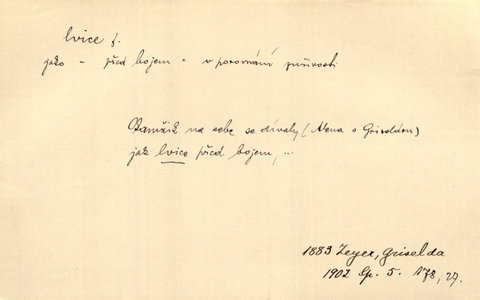 lvice f.
jako – před bojem • v porovnání zuřivosti
Okamžik na sebe se dívaly (Alena a Griseldou)
jak lvice před bojem, ...
1883 Zeyer, Griselda
1902 Sp. 5. 178, 27.